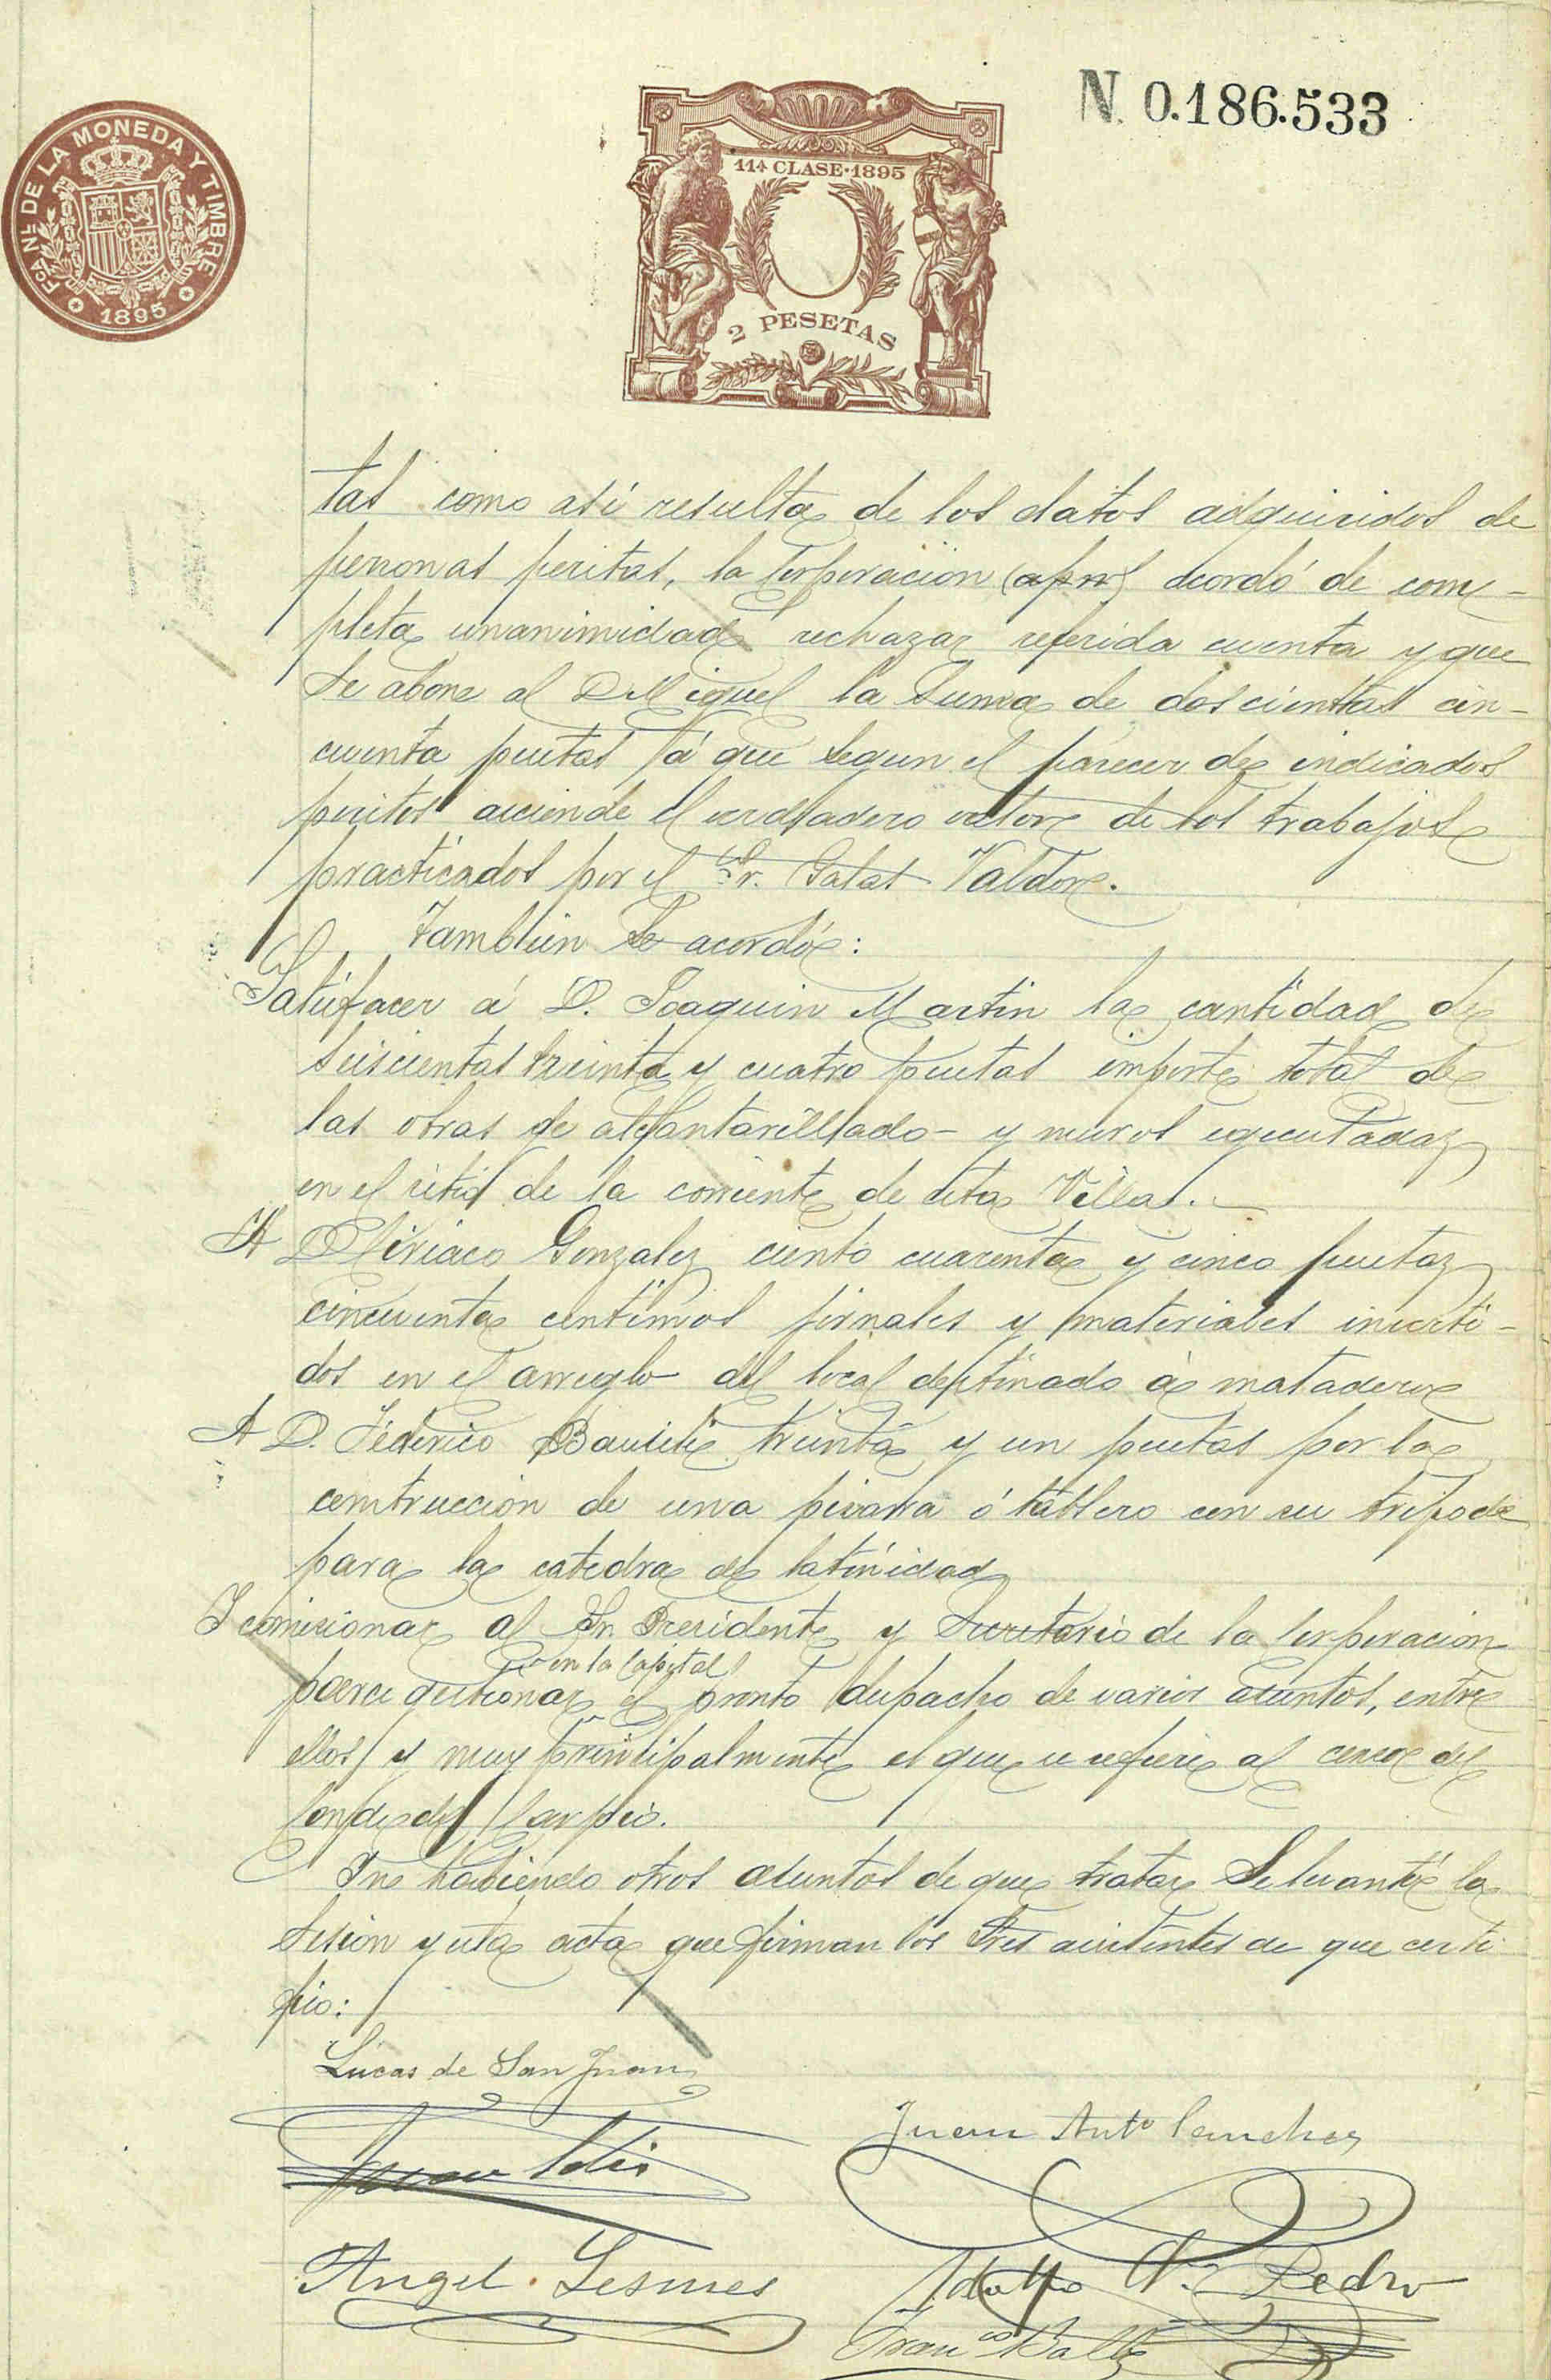 FCA NL DE LA MONEDA Y TIMBRE
1895
11ª CLASE·1895
2 PESETAS
N. 0.186.533
tas como así resulta de los datos adquiridos de
personas peritas, la Corporación (apro) acordó de com-
pleta unanimidad rechazar referida cuenta y que
se abone al D. Miguel la suma de doscientas cin-
cuenta pesetas á que segun el parecer de indicados
peritos asciende el verdadero valor de los trabajos
practicados por el Sr. Salas Valdor.
Tambien se acordó:
Satisfacer á D. Joaquin Martin la cantidad de
seiscientas treinta y cuatro pesetas importe total de
las obras de alcantarillado y muros ejecutadas
en el sitio de la corriente de esta Villa.
A D. Ciriaco Gonzalez ciento cuarenta y cinco pesetas
cincuenta centimos jornales y materiales inverti-
dos en el arreglo del local destinado á matadero
A D. Federico Bautista treinta y un pesetas por la
construcción de una pizarra ó tablero con su tripode
para la catedra de latinidad
Y comisionar al Sr. Presidente y Secretario de la Corporacion
en la Capital
para gestionar el pronto despacho de varios asuntos, entre
ellos y muy principalmente el que se refiere al censo del
Conde del Carpio.
Y no habiendo otros asuntos de que tratar se levantó la
sesion y esta acta que firman los Sres asistentes de que certi
fico:
Lucas de San Juan
Juan Antº Sanchez
Angel Lesmes
Adolfo Pedro
Francº Valle